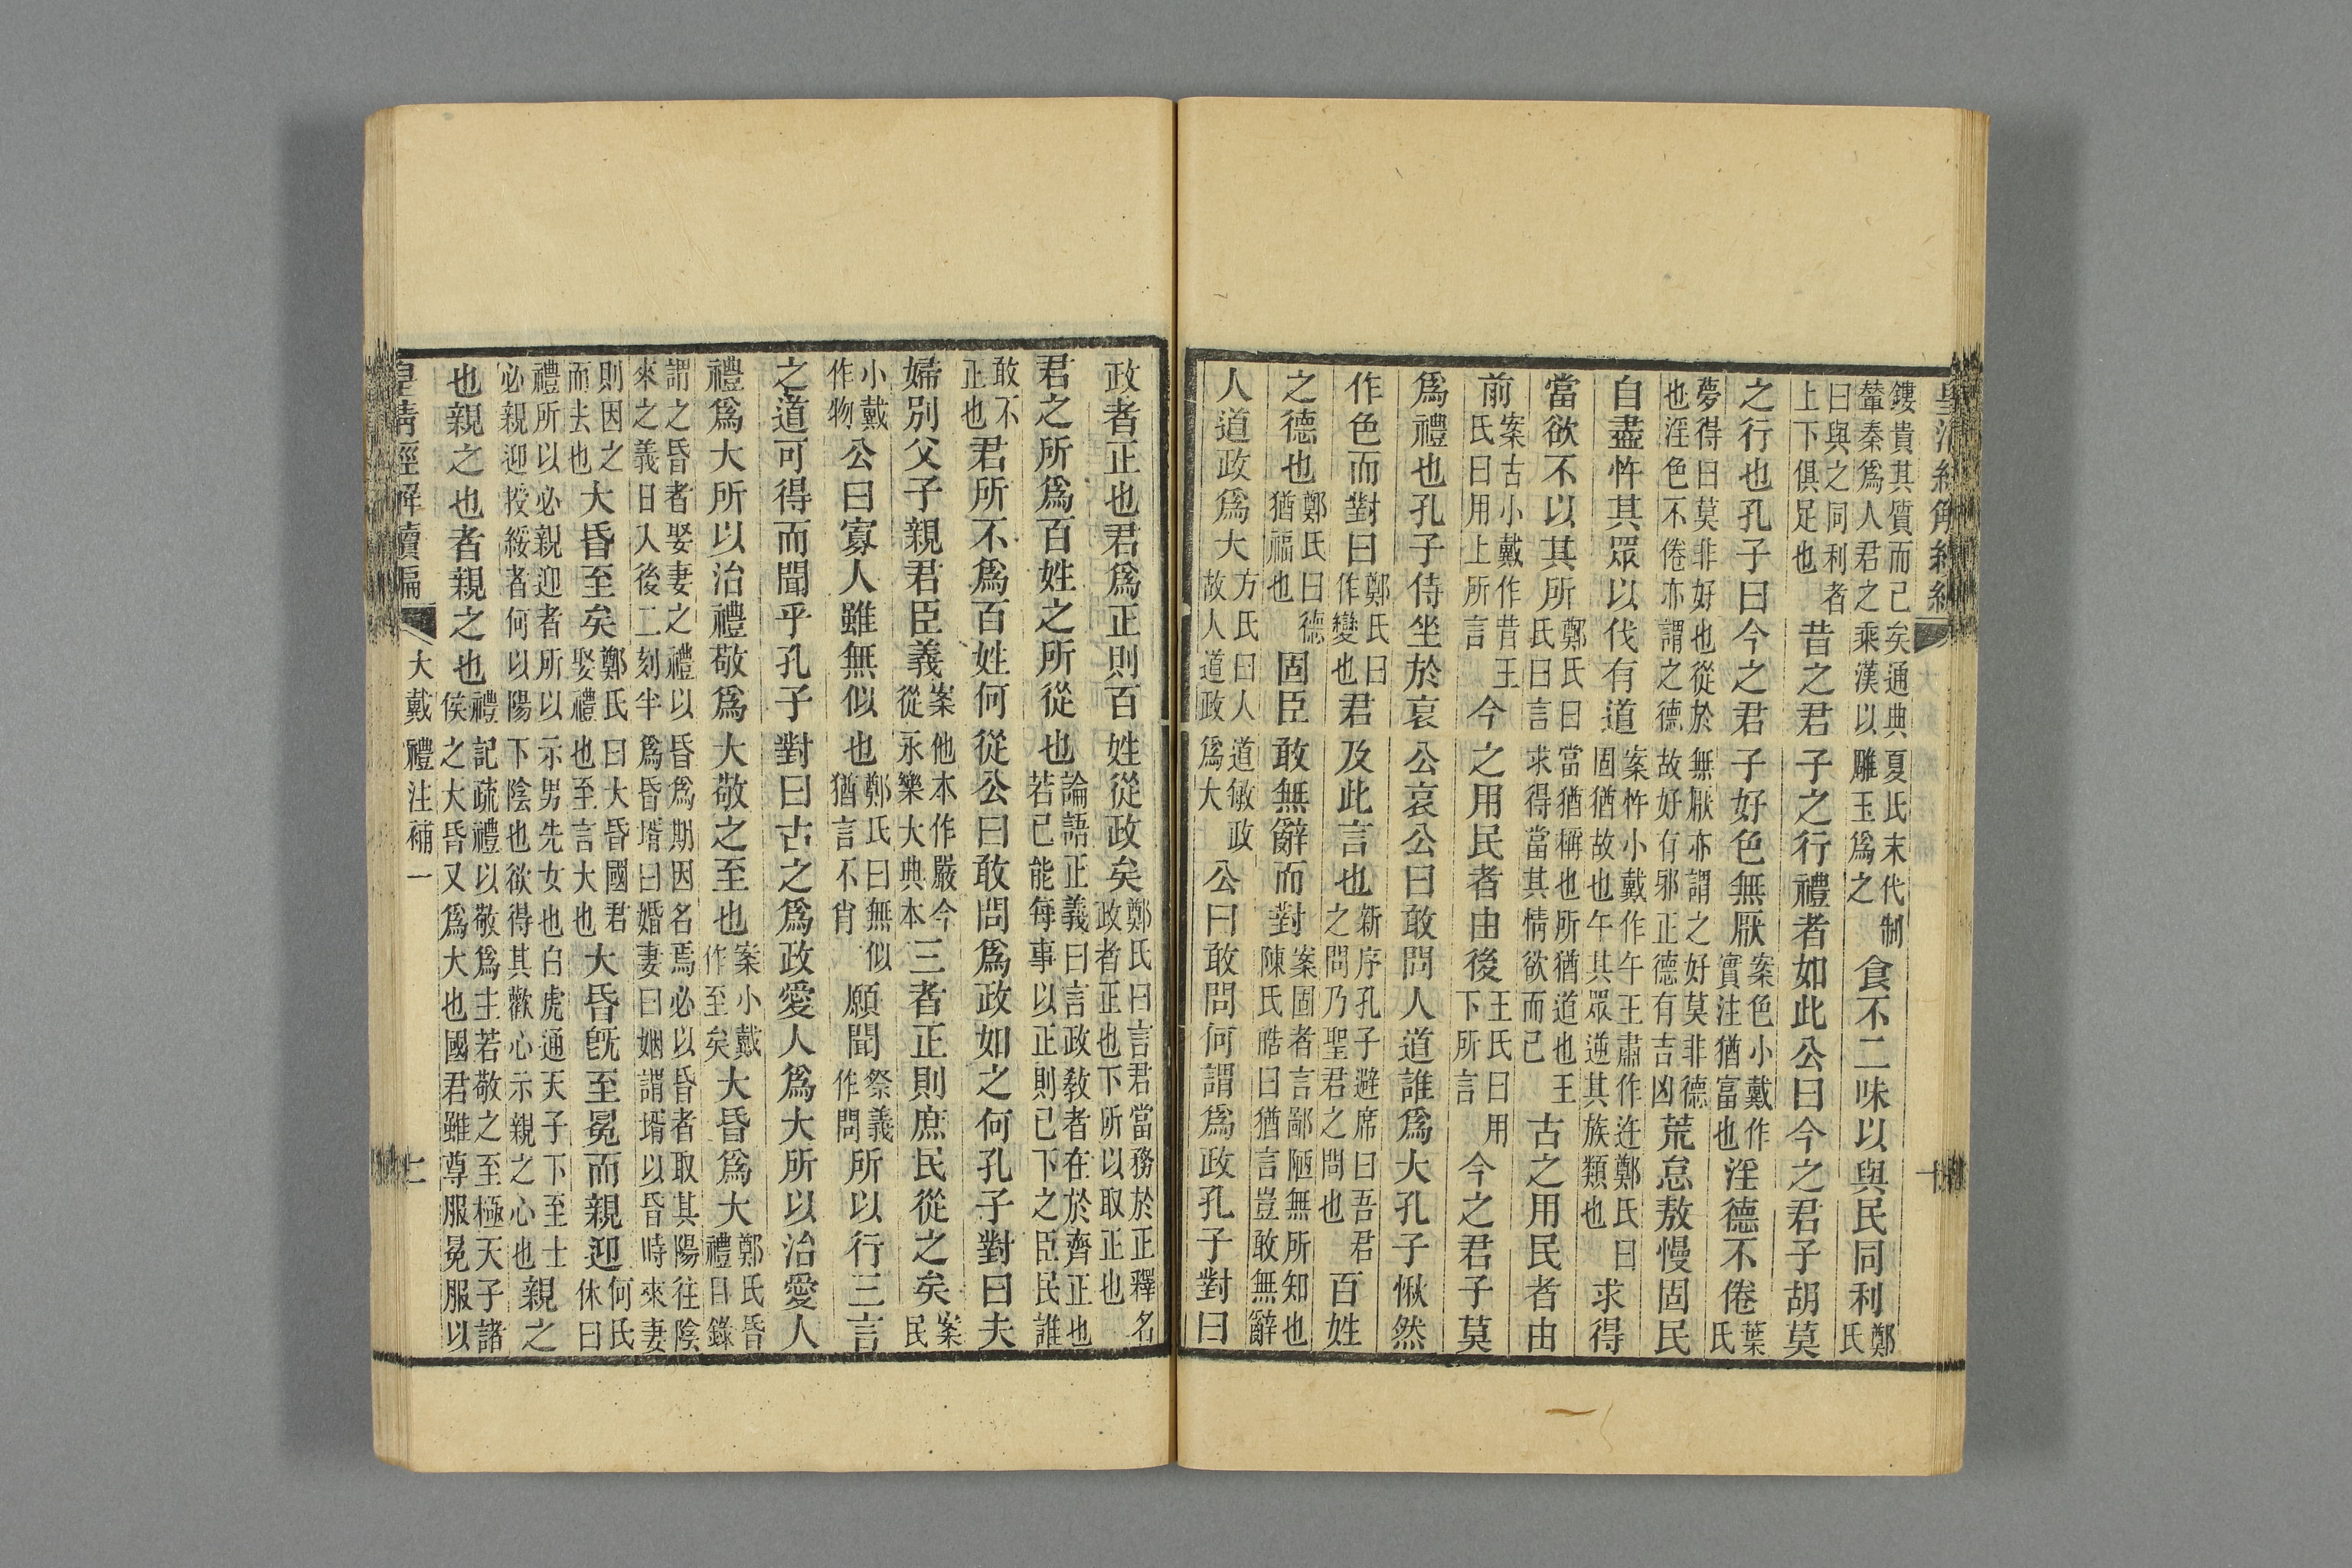 鏤貴其質而已矣通典夏氏末代制輦秦爲人君之乘漢以雕玉爲之食不二味以與民同利鄭氏
曰與之同利者上下俱足也昔之君子之行禮者如此公曰今之君子胡莫
之行也孔子曰今之君子好色無厭案色小戴作實注猶富也淫德不倦葉氏
夢得曰莫非好也從於無厭亦謂之好莫非德也淫色不倦亦謂之德故好有邪正德有吉凶荒怠敖慢固民
自盡忤其眾以伐有道案忤小戴作午王肅作迕鄭氏曰固猶故也午其眾逆其族類也求得
當欲不以其所鄭氏曰當猶稱也所猶道也王氏曰言求得當其情欲而已古之用民者由
前案古小戴作昔王氏曰用上所言今之用民者由後王氏曰用下所言今之君子莫
爲禮也孔子侍坐於哀公哀公曰敢問人道誰爲大孔子愀然
作色而對曰鄭氏曰作變也君及此言也新序孔子避席曰吾君之問乃聖君之問也百姓
之德也鄭氏曰德猶福也固臣敢無辭而對案固者言鄙陋無所知也陳氏皓曰猶言豈敢無辭
人道政爲大方氏曰人道敏政故人道政爲大公曰敢問何謂爲政孔子對曰
政者正也君爲正則百姓從政矣鄭氏曰言君當務於正釋名政者正也下所以取正也
君之所爲百姓之所從也論語正義曰言政教者在於齊正也若己能每事以正則己下之臣民誰
敢不正也君所不爲百姓何從公曰敢問爲政如之何孔子對曰夫
婦別父子親君臣義案他本作嚴今從永樂大典本三者正則庶民從之矣案民
小戴作物公曰寡人雖無似也鄭氏曰無似猶言不肖願聞祭義作問所以行三言
之道可得而聞乎孔子對曰古之爲政愛人爲大所以治愛人
禮爲大所以治禮敬爲大敬之至也案小戴作至矣大昏爲大鄭氏昏禮目錄
謂之昏者娶妻之禮以昏爲期因名焉必以昏者取其陽往陰來之義日入後二刻半爲昏壻曰婚妻曰姻謂壻以昏時來妻
則因之而去也大昏至矣鄭氏曰大昏國君娶禮也至言大也大昏旣至冕而親迎何氏休曰
禮所以必親迎者所以示男先女也白虎通天子下至士必親迎授綏者何以陽下陰也欲得其歡心示親之心也親之
也親之也者親之也禮記疏禮以敬爲主若敬之至極天子諸侯之大昏又爲大也國君雖尊服冕服以
皇清經解續編 大戴禮注補一